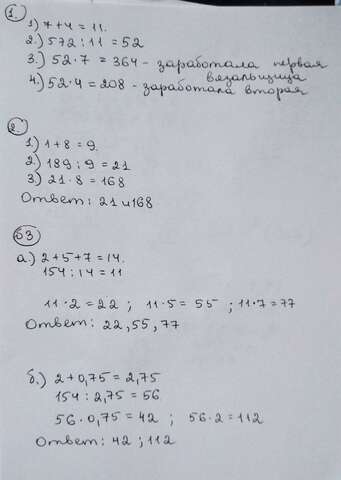 1.
1) 7+4 = 11.
2.) 572 : 11 = 52
3.) 52 · 7 = 364 - заработала первая
вязальщица
4.) 52 · 4 = 208 - заработала вторая
2.
1) 1+8 = 9.
2) 189 : 9 = 21
3) 21 · 8 = 168
Ответ: 21 и 168
б3
а.) 2+5+7 = 14.
154 : 14 = 11
11 · 2 = 22 ; 11 · 5 = 55 ; 11 · 7 = 77
Ответ: 22, 55, 77
б.) 2 + 0,75 = 2,75
154 : 2,75 = 56
56 · 0,75 = 42 ; 56 · 2 = 112
Ответ: 42 ; 112